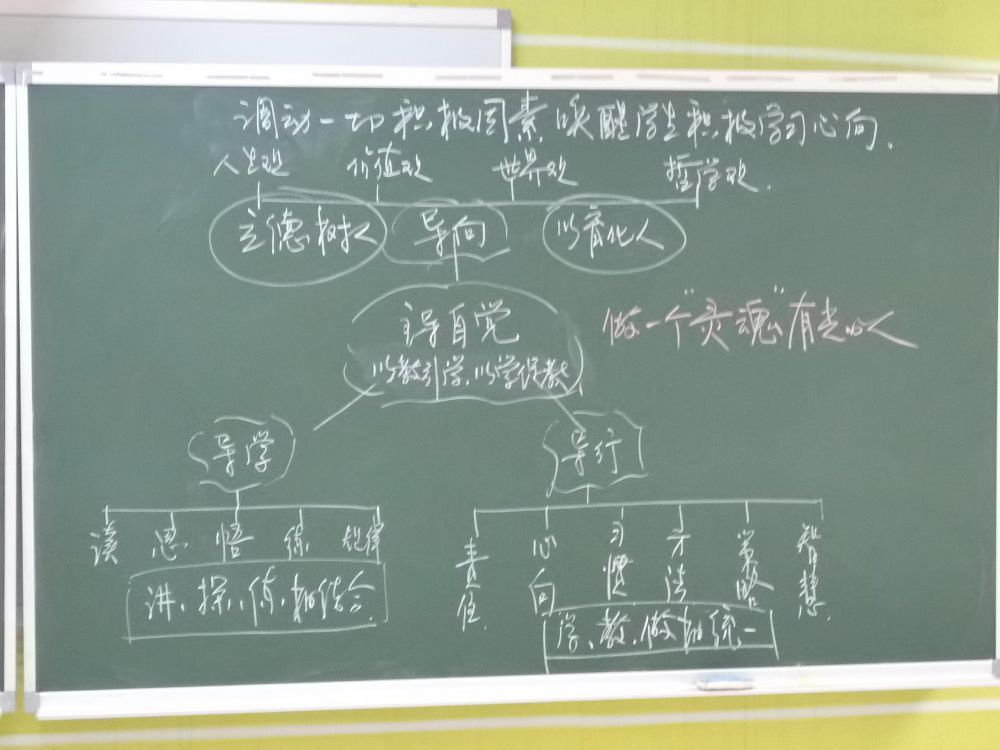 调动一切积极因素唤醒学生积极学习心向.
人生观 价值观 世界观 哲学观.
立德树人 导向 以育化人
主导自觉
以教引学、以学促教
做一个“灵魂”有光的人
导学 导行
读 思 悟 练 规律
责任 心向 习惯 方法 策略 智慧
讲、探、练、相结合
学、教、做相统一